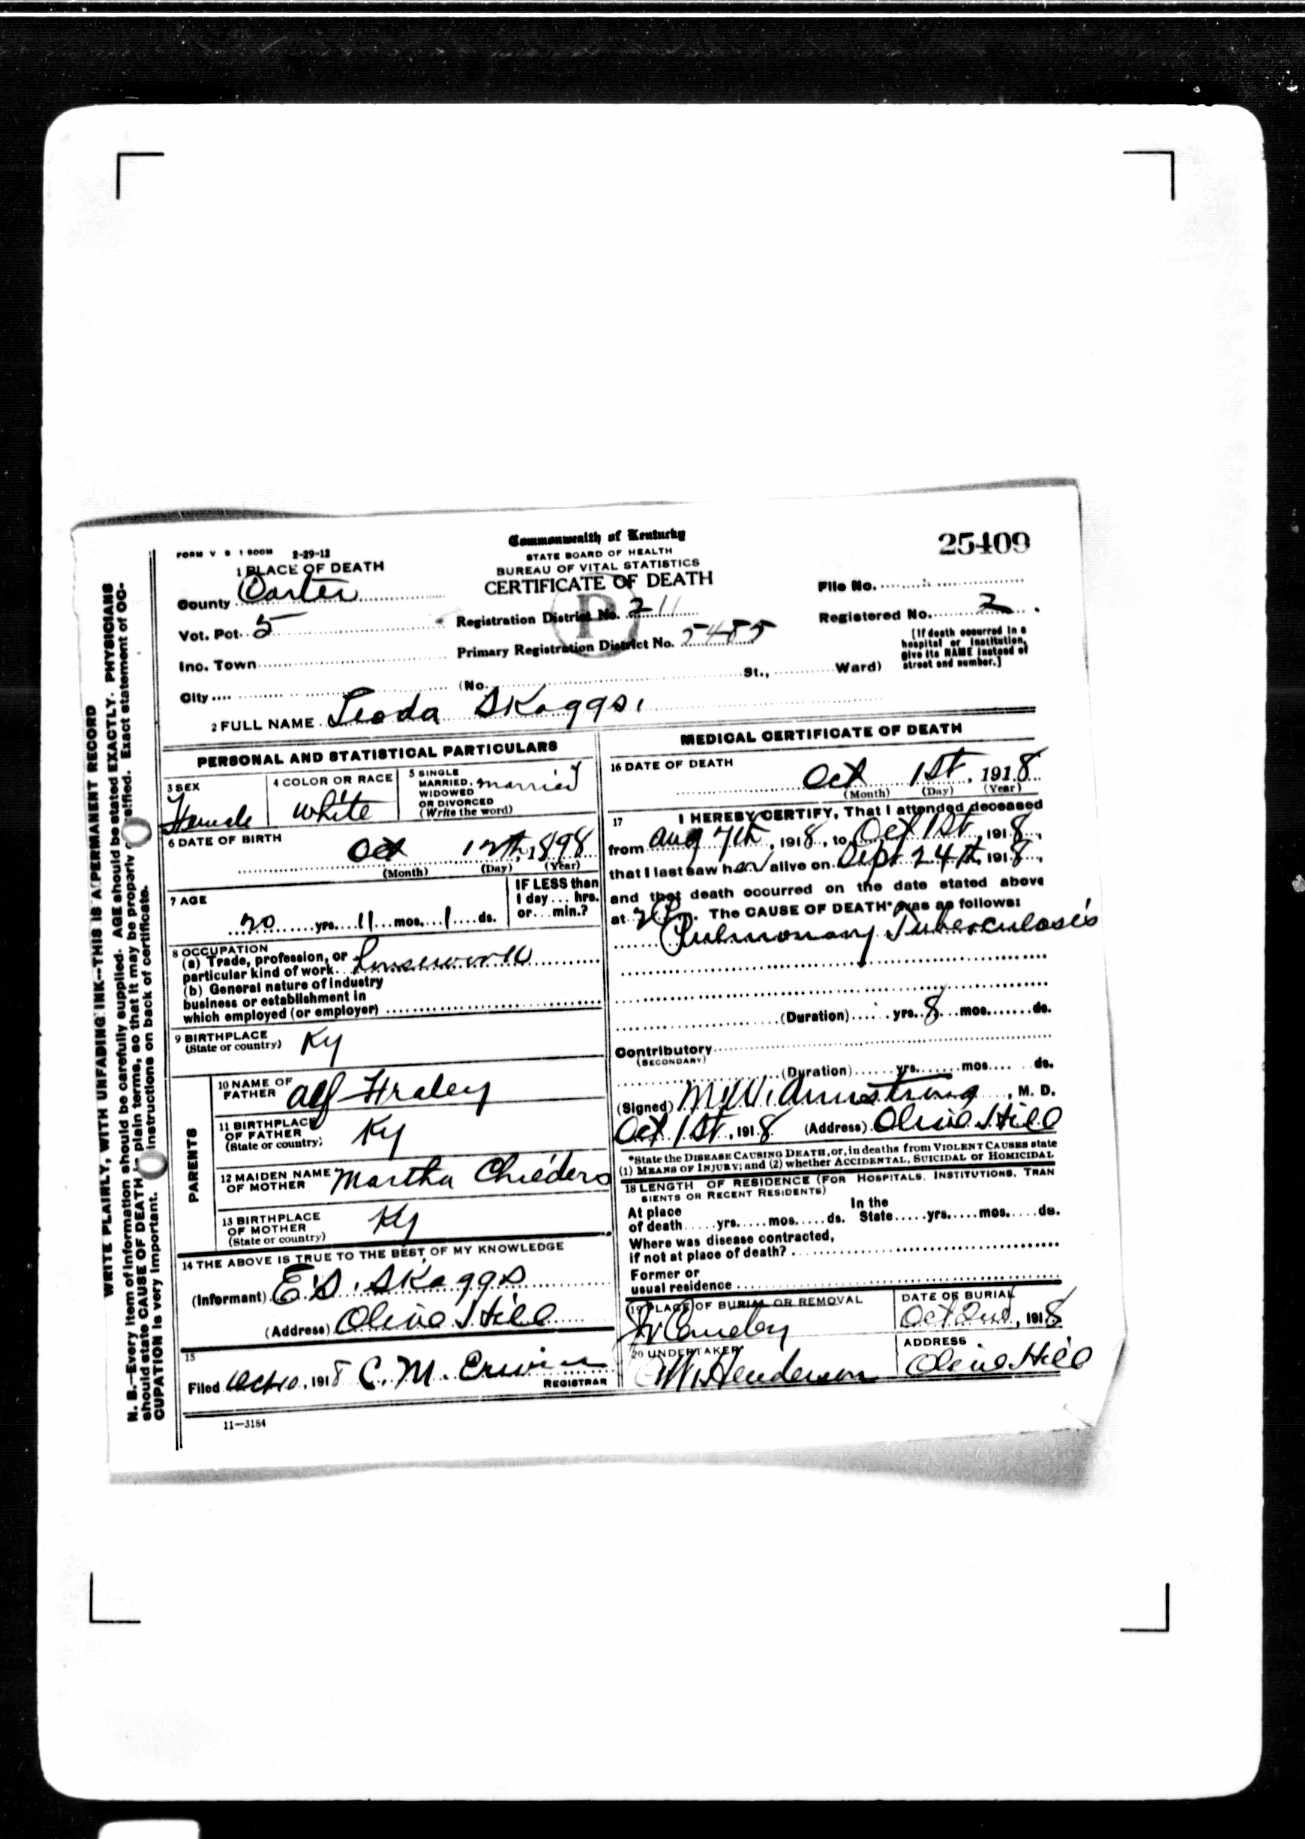 FORM V S 1 500M 2-29-12
Commonwealth of Kentucky
STATE BOARD OF HEALTH
BUREAU OF VITAL STATISTICS
CERTIFICATE OF DEATH
25409
1 PLACE OF DEATH
County Carter
Vot. Pct. 5
Inc. Town
City
Registration District No. 211
Primary Registration District No. 5485
(No. St., Ward)
File No.
Registered No. 2
[If death occurred in a
hospital or institution,
give its NAME instead of
street and number.]
2 FULL NAME Leoda Skaggs.
PERSONAL AND STATISTICAL PARTICULARS
3 SEX
Female
4 COLOR OR RACE
white
5 SINGLE
MARRIED,
WIDOWED
OR DIVORCED
(Write the word)
married
6 DATE OF BIRTH
Oct 12th, 1898
(Month) (Day) (Year)
7 AGE
20 yrs. 11 mos. 1 ds.
IF LESS than
1 day... hrs.
or... min.?
8 OCCUPATION
(a) Trade, profession, or
particular kind of work housework
(b) General nature of industry
business or establishment in
which employed (or employer)
9 BIRTHPLACE
(State or country) Ky
PARENTS
10 NAME OF
FATHER Alf Fraley
11 BIRTHPLACE
OF FATHER
(State or country) Ky
12 MAIDEN NAME
OF MOTHER Martha
13 BIRTHPLACE
OF MOTHER
(State or country) Ky
14 THE ABOVE IS TRUE TO THE BEST OF MY KNOWLEDGE
(Informant) E.S. Skaggs
(Address) Olive Hill
15
Filed Oct 10, 1918 C. M. Erwin
REGISTRAR
11—3184
MEDICAL CERTIFICATE OF DEATH
16 DATE OF DEATH
Oct 1st, 1918
(Month) (Day) (Year)
17 I HEREBY CERTIFY, That I attended deceased
from Aug 7th, 1918, to Oct 1st, 1918,
that I last saw her alive on Sept 24th, 1918,
and that death occurred on the date stated above
at The CAUSE OF DEATH* was as follows:
Pulmonary Tuberculosis
(Duration) yrs. 8 mos. ds.
Contributory
(SECONDARY)
(Duration) yrs. mos. ds.
(Signed) M. W. Armstrong, M. D.
Oct 1st, 1918 (Address) Olive Hill
*State the DISEASE CAUSING DEATH, or, in deaths from VIOLENT CAUSES state
(1) MEANS OF INJURY; and (2) whether ACCIDENTAL, SUICIDAL OR HOMICIDAL
18 LENGTH OF RESIDENCE (FOR HOSPITALS, INSTITUTIONS, TRAN
SIENTS OR RECENT RESIDENTS)
At place In the
of death yrs. mos. ds. State yrs. mos. ds.
Where was disease contracted,
if not at place of death?
Former or
usual residence
19 PLACE OF BURIAL OR REMOVAL
DATE OF BURIAL
Oct 2nd, 1918
20 UNDERTAKER
Henderson
ADDRESS
Olive Hill
WRITE PLAINLY, WITH UNFADING INK--THIS IS A PERMANENT RECORD
N. B.—Every item of information should be carefully supplied. AGE should be stated EXACTLY. PHYSICIANS
should state CAUSE OF DEATH in plain terms, so that it may be properly classified. Exact statement of OC-
CUPATION is very important. instructions on back of certificate.